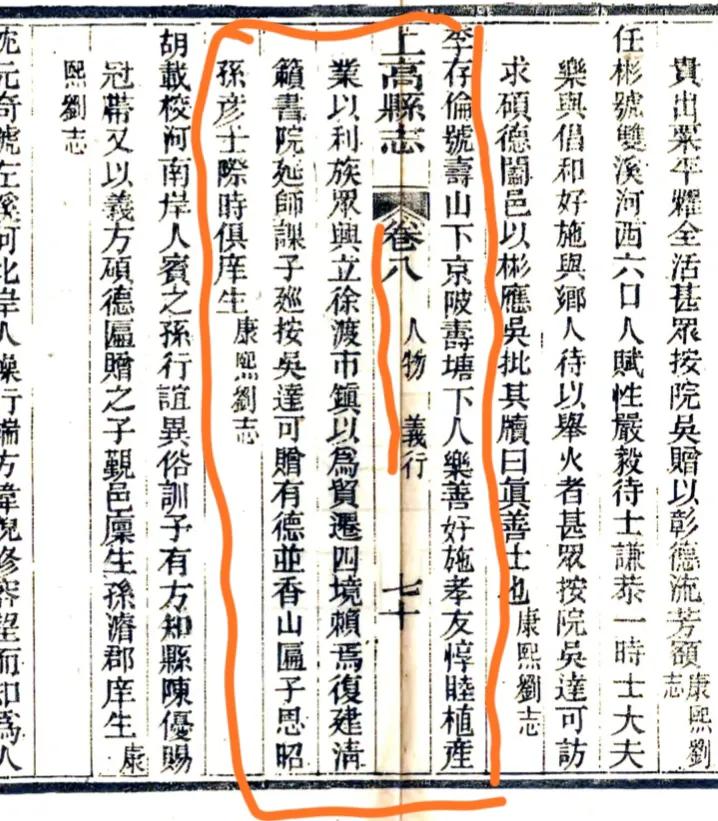 貴出粟平糶全活甚眾按院吳贈以彰德流芳額康熙劉志
任彬號雙溪河西六口人賦性嚴毅待士謙恭一時士大夫
樂與倡和好施與鄉人待以舉火者甚眾按院吳達可訪
求碩德闔邑以彬應吳批其牘曰真善士也康熙劉志
李存倫號壽山下京陂壽塘下人樂善好施孝友惇睦植產
上高縣志 卷八 人物 義行 七十
業以利族眾興立徐渡市鎮以為貿遷四境賴焉復建清
籟書院延師課子廵按吳達可贈有德並香山匾子思昭
孫彥士際時俱庠生康熙劉志
胡載校河南岸人賓之孫行誼異俗訓子有方知縣陳優賜
冠帶又以義方碩德匾贈之子覲邑廩生孫濟郡庠生康
熙劉志
元奇號左溪河北岸人操行端方偉貌修容望而知為人